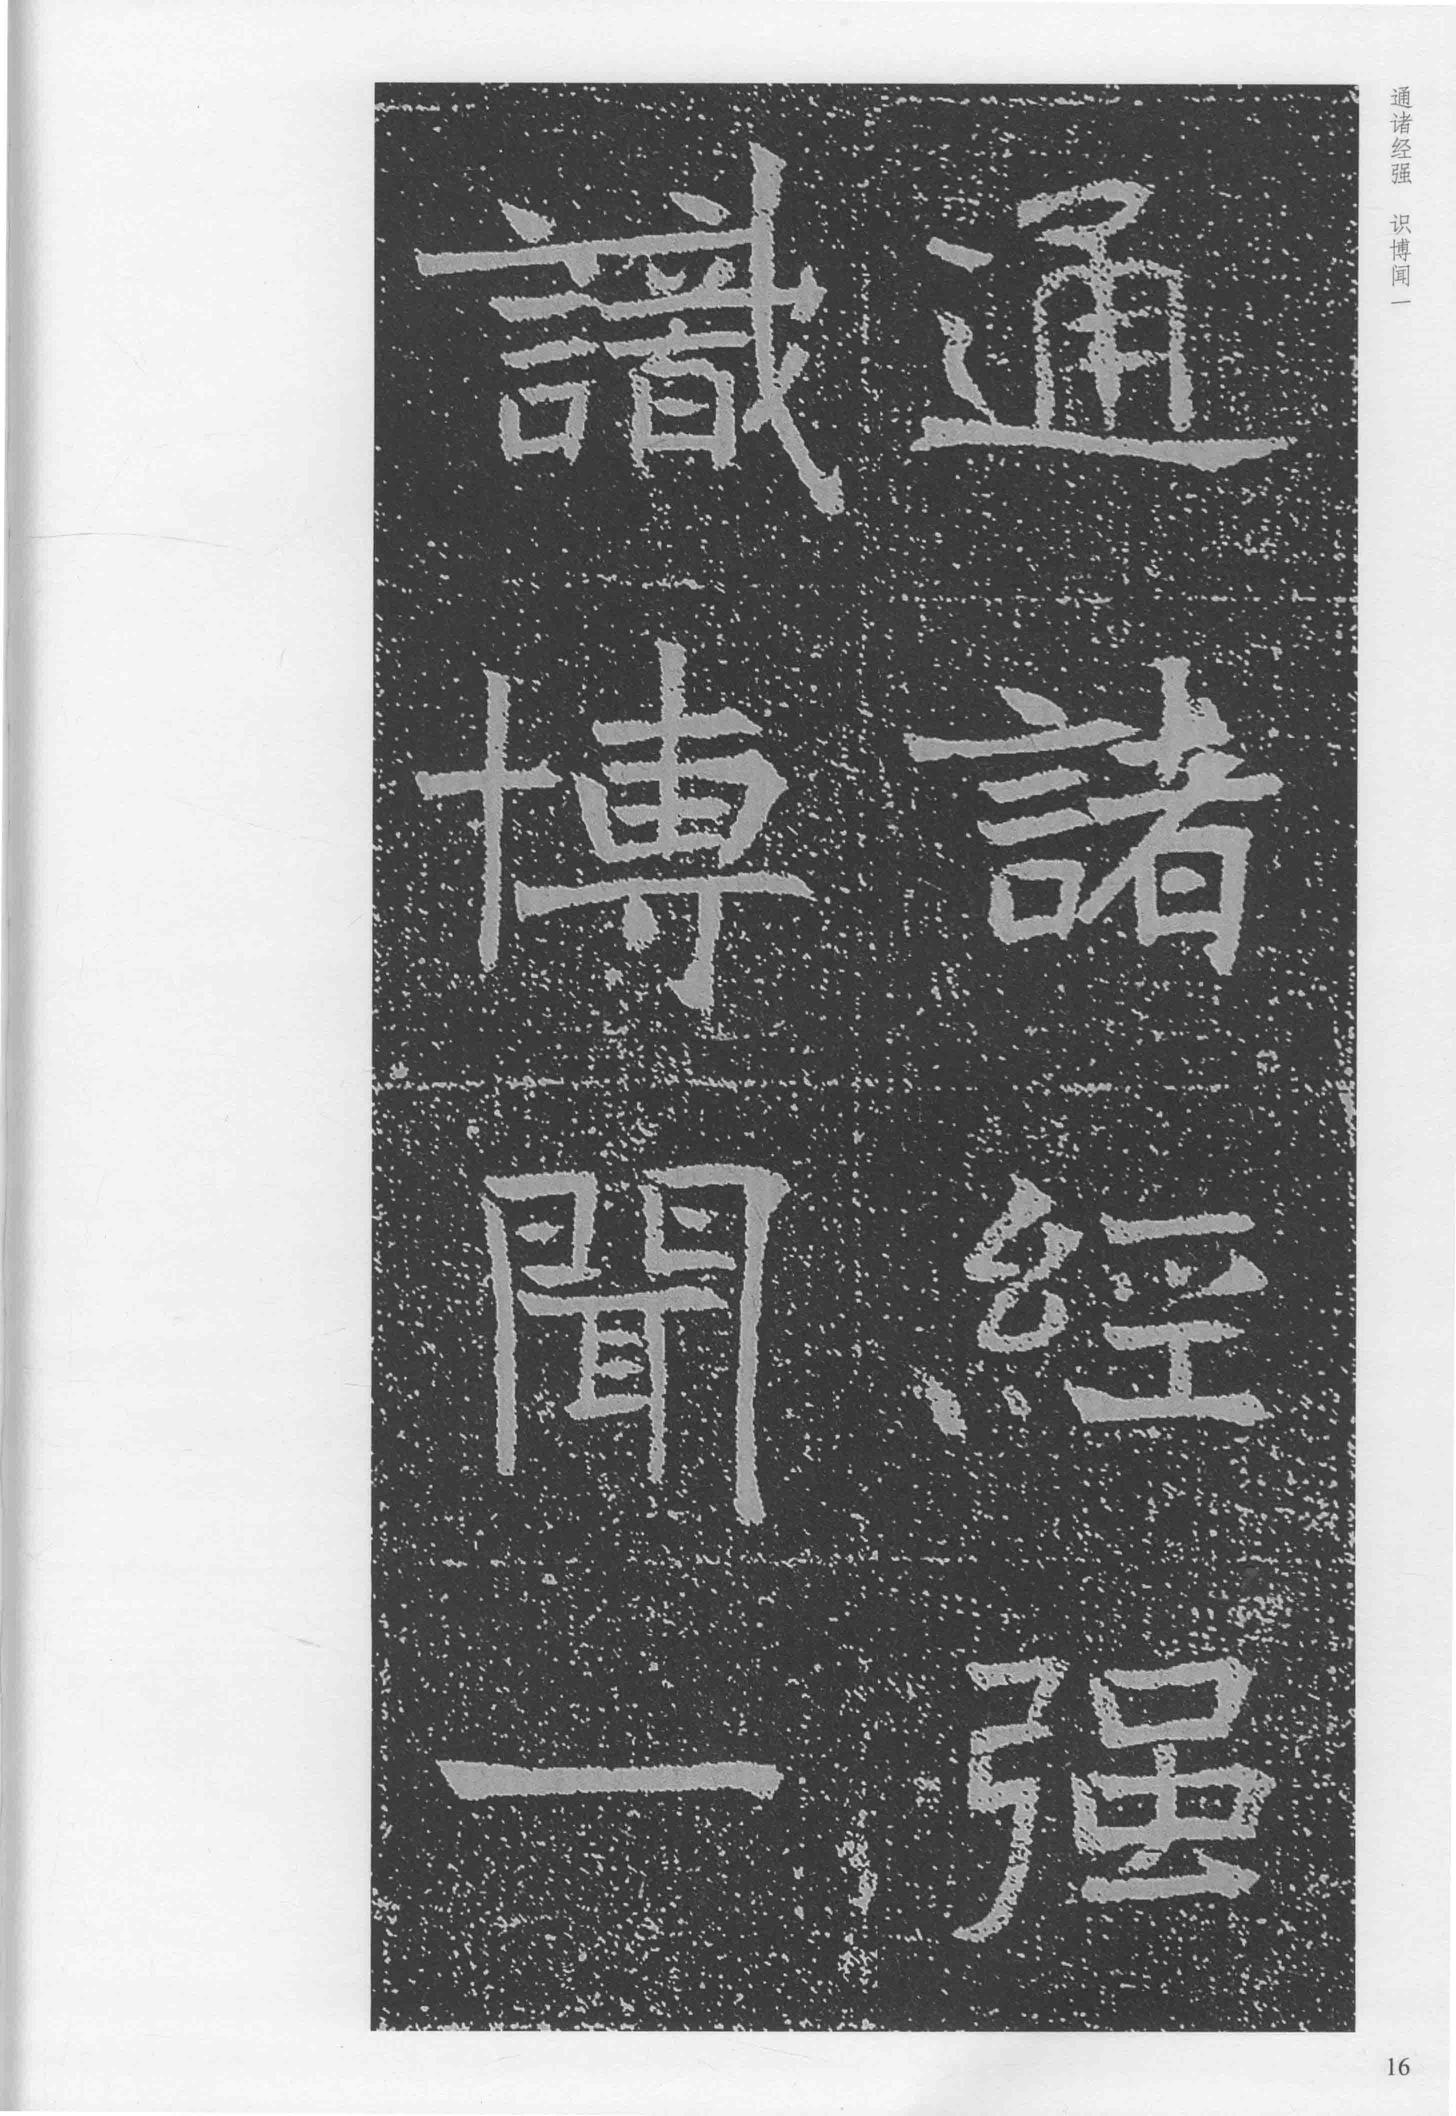 通诸经强　识博闻一
通諸經强
識博聞一
16